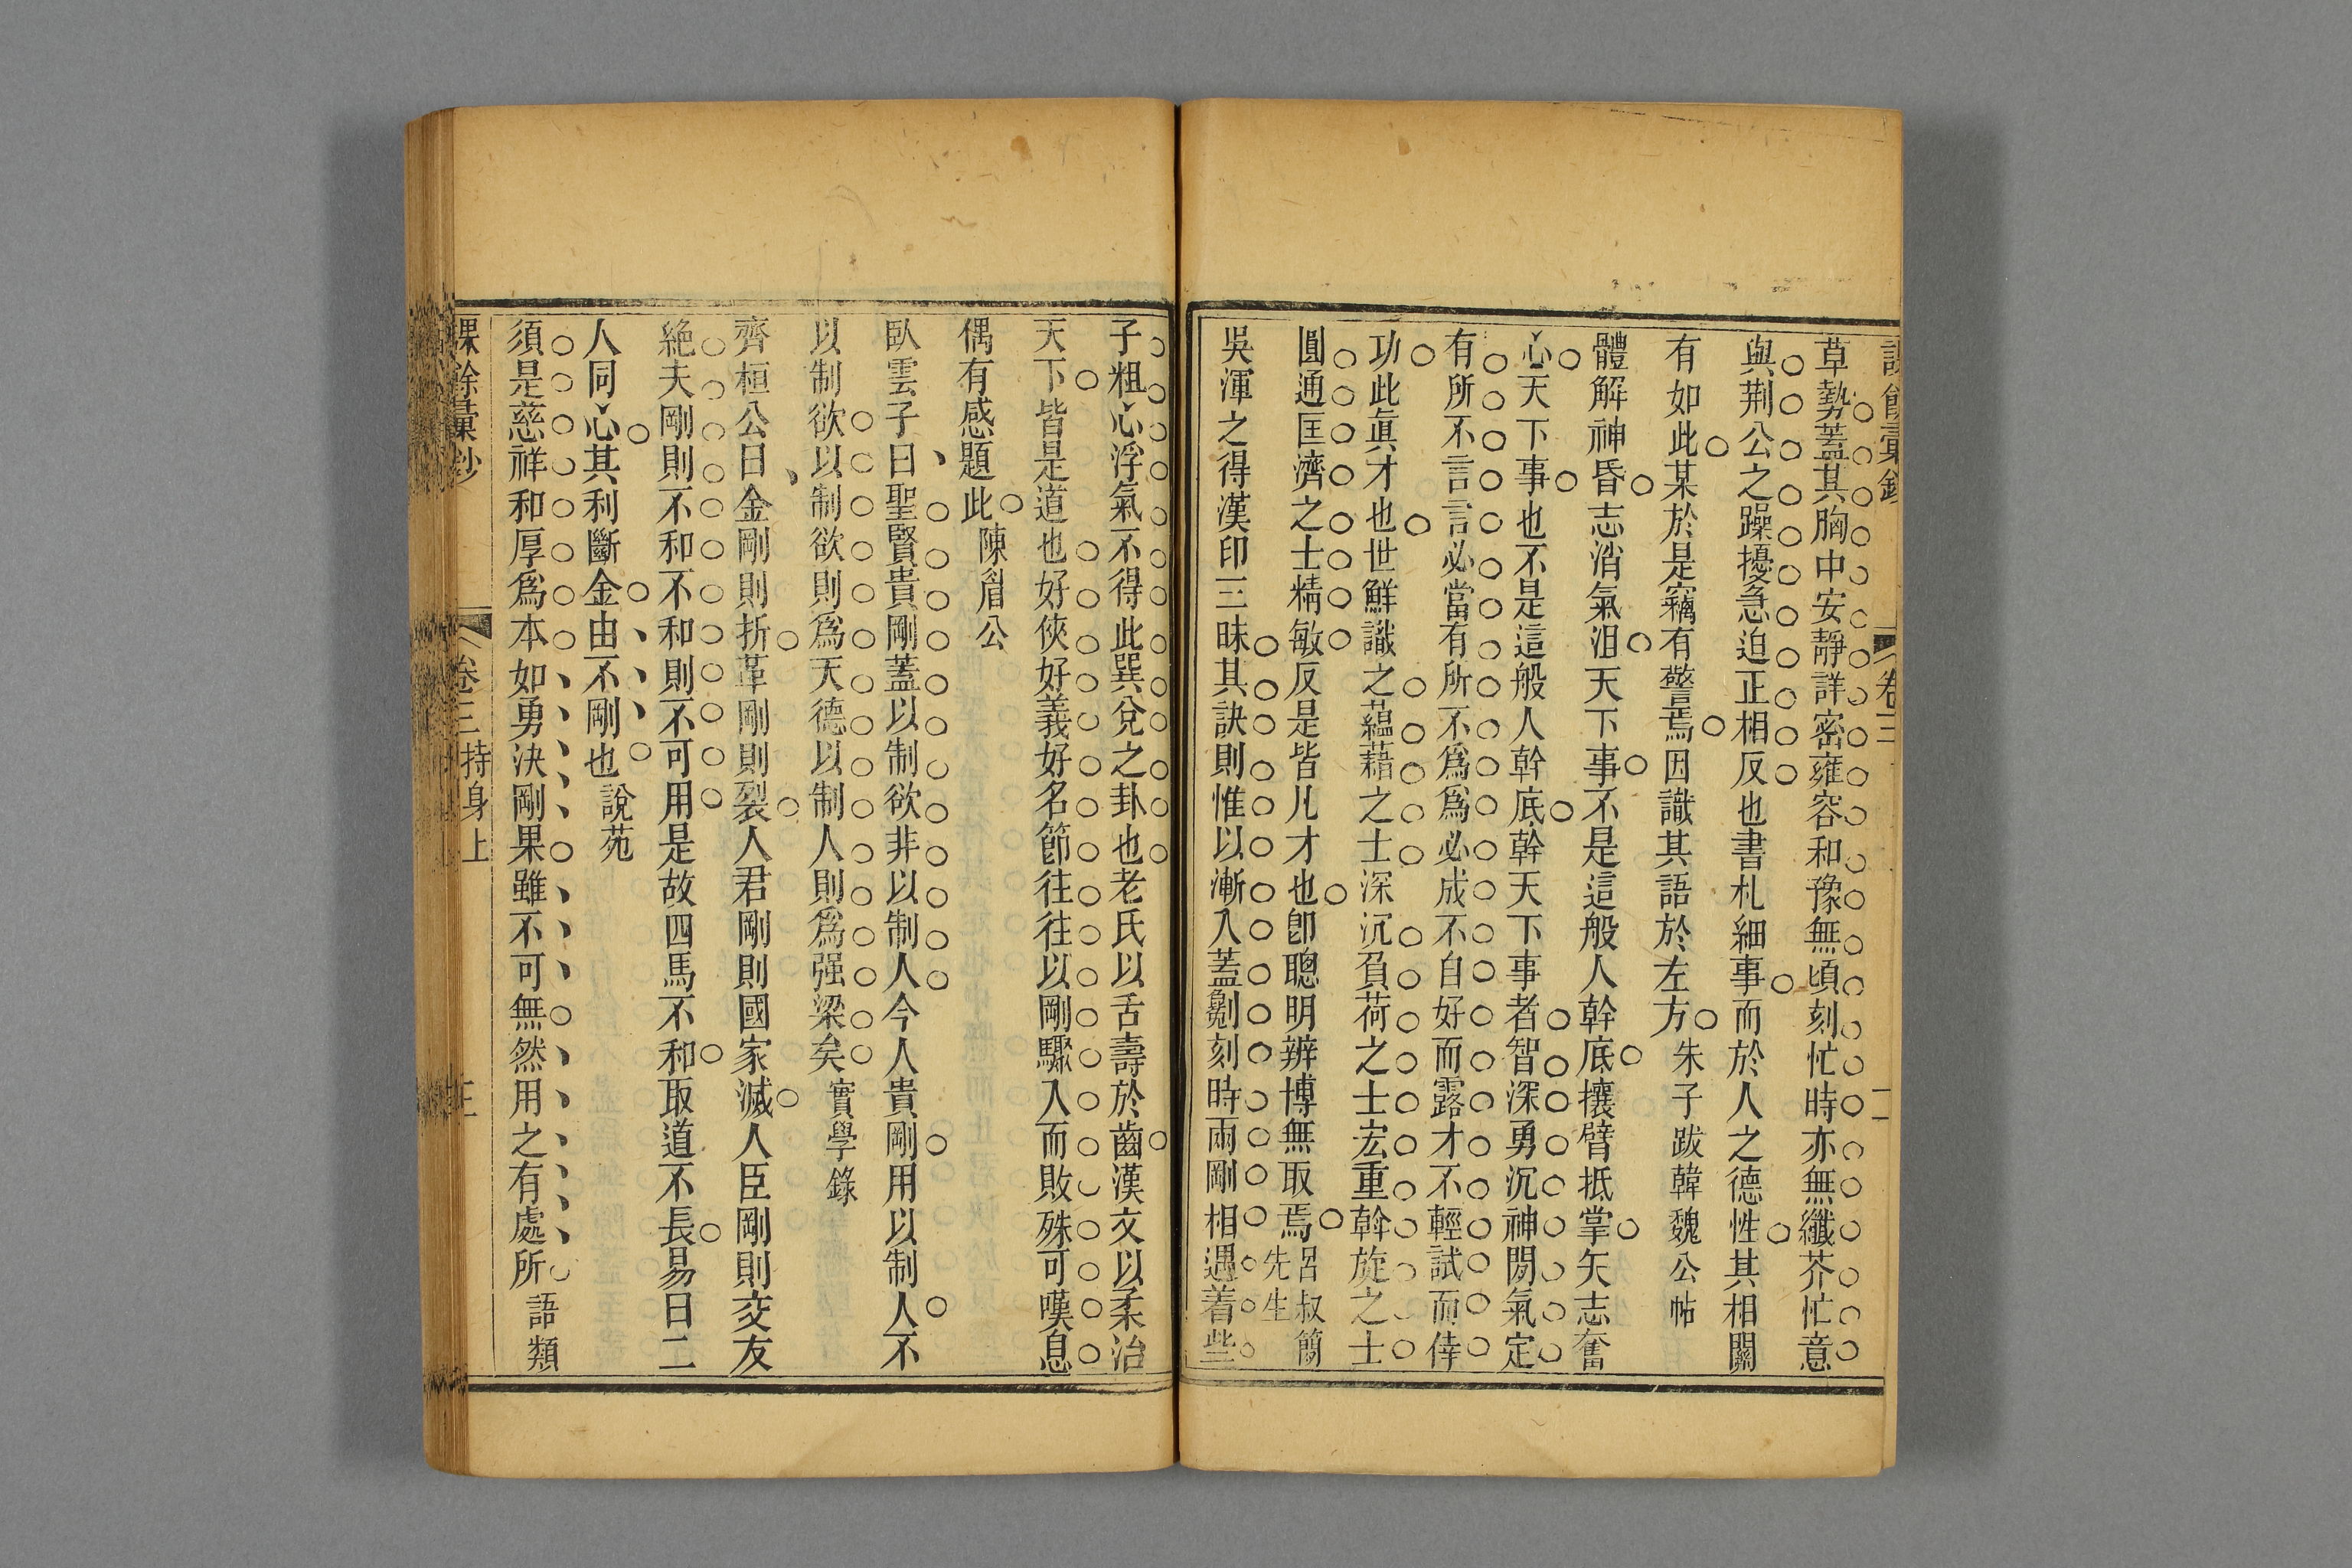 課餘彙鈔 卷三 二
草勢蓋其胸中安靜詳密雍容和豫無頃刻忙時亦無纖芥忙意
與荆公之躁擾急迫正相反也書札細事而於人之德性其相關
有如此某於是竊有警焉因識其語於左方朱子跋韓魏公帖
體解神昏志消氣沮天下事不是這般人幹底攘臂抵掌矢志奮
心天下事也不是這般人幹底幹天下事者智深勇沉神閒氣定
有所不言言必當有所不爲爲必成不自好而露才不輕試而倖
功此眞才也世鮮識之蘊藉之士深沉負荷之士宏重斡旋之士
圓通匡濟之士精敏反是皆凡才也卽聰明辨博無取焉呂叔簡先生
吳渾之得漢印三昧其訣則惟以漸入蓋剞刻時兩剛相遇着些
子粗心浮氣不得此巽兌之卦也老氏以舌壽於齒漢文以柔治
天下皆是道也好俠好義好名節往往以剛驟入而敗殊可嘆息
偶有感題此陳眉公
臥雲子曰聖賢貴剛蓋以制欲非以制人今人貴剛用以制人不
以制欲以制欲則爲天德以制人則爲强梁矣實學錄
齊桓公曰金剛則折革剛則裂人君剛則國家滅人臣剛則交友
絶夫剛則不和不和則不可用是故四馬不和取道不長易曰二
人同心其利斷金由不剛也說苑
須是慈祥和厚爲本如勇決剛果雖不可無然用之有處所語類
課餘彙鈔 卷三持身上